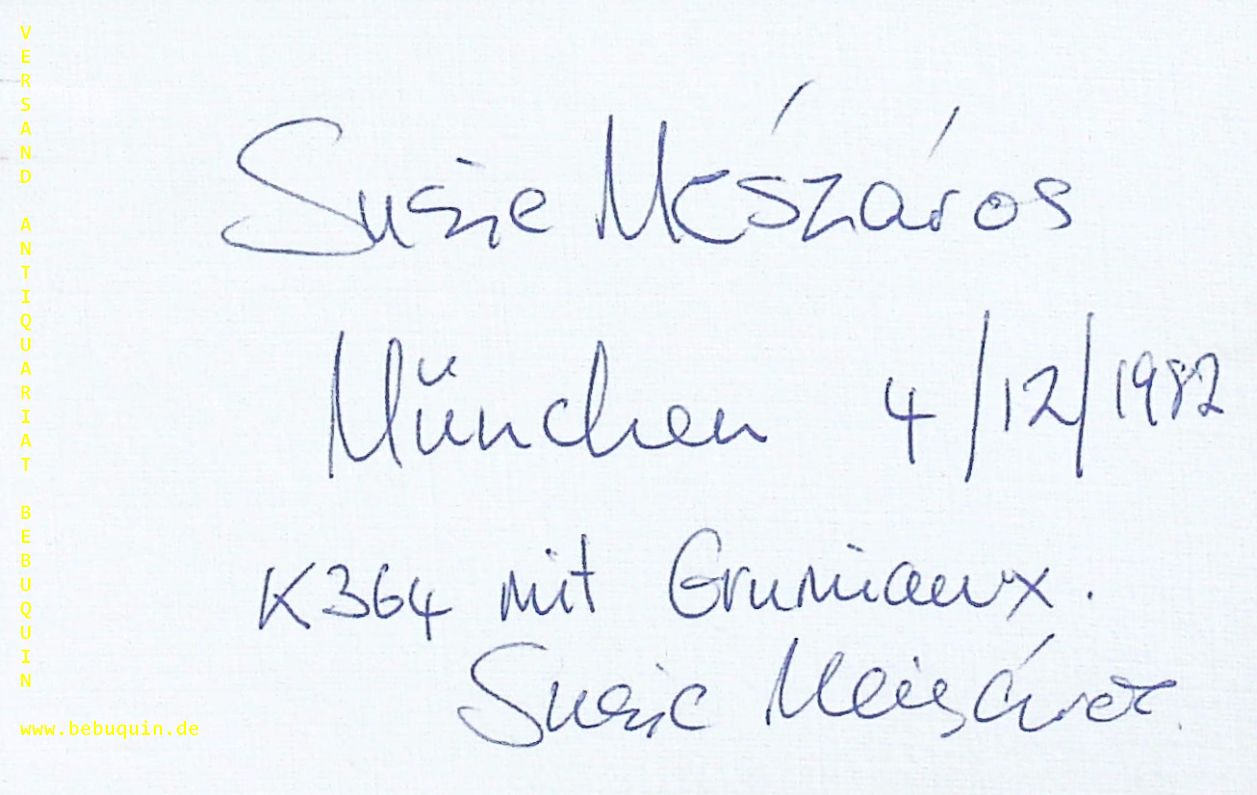 VERSAND ANTIQUARIAT BEBUQUIN
www.bebuquin.de
Susie Mészáros
München 4/12/1982
K364 mit Grumiaux.
Susie Mészáros.